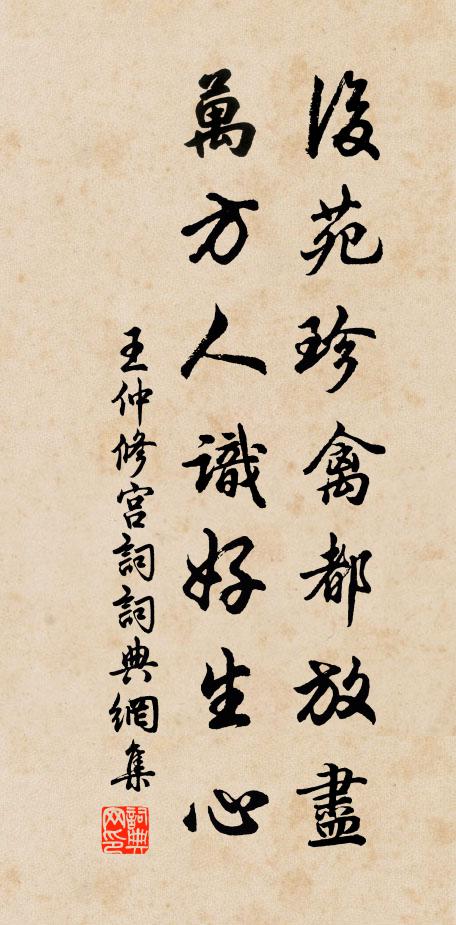 後苑珍禽都放盡
萬方人識好生心
王仲修宮詞詞典網集
詞典网印